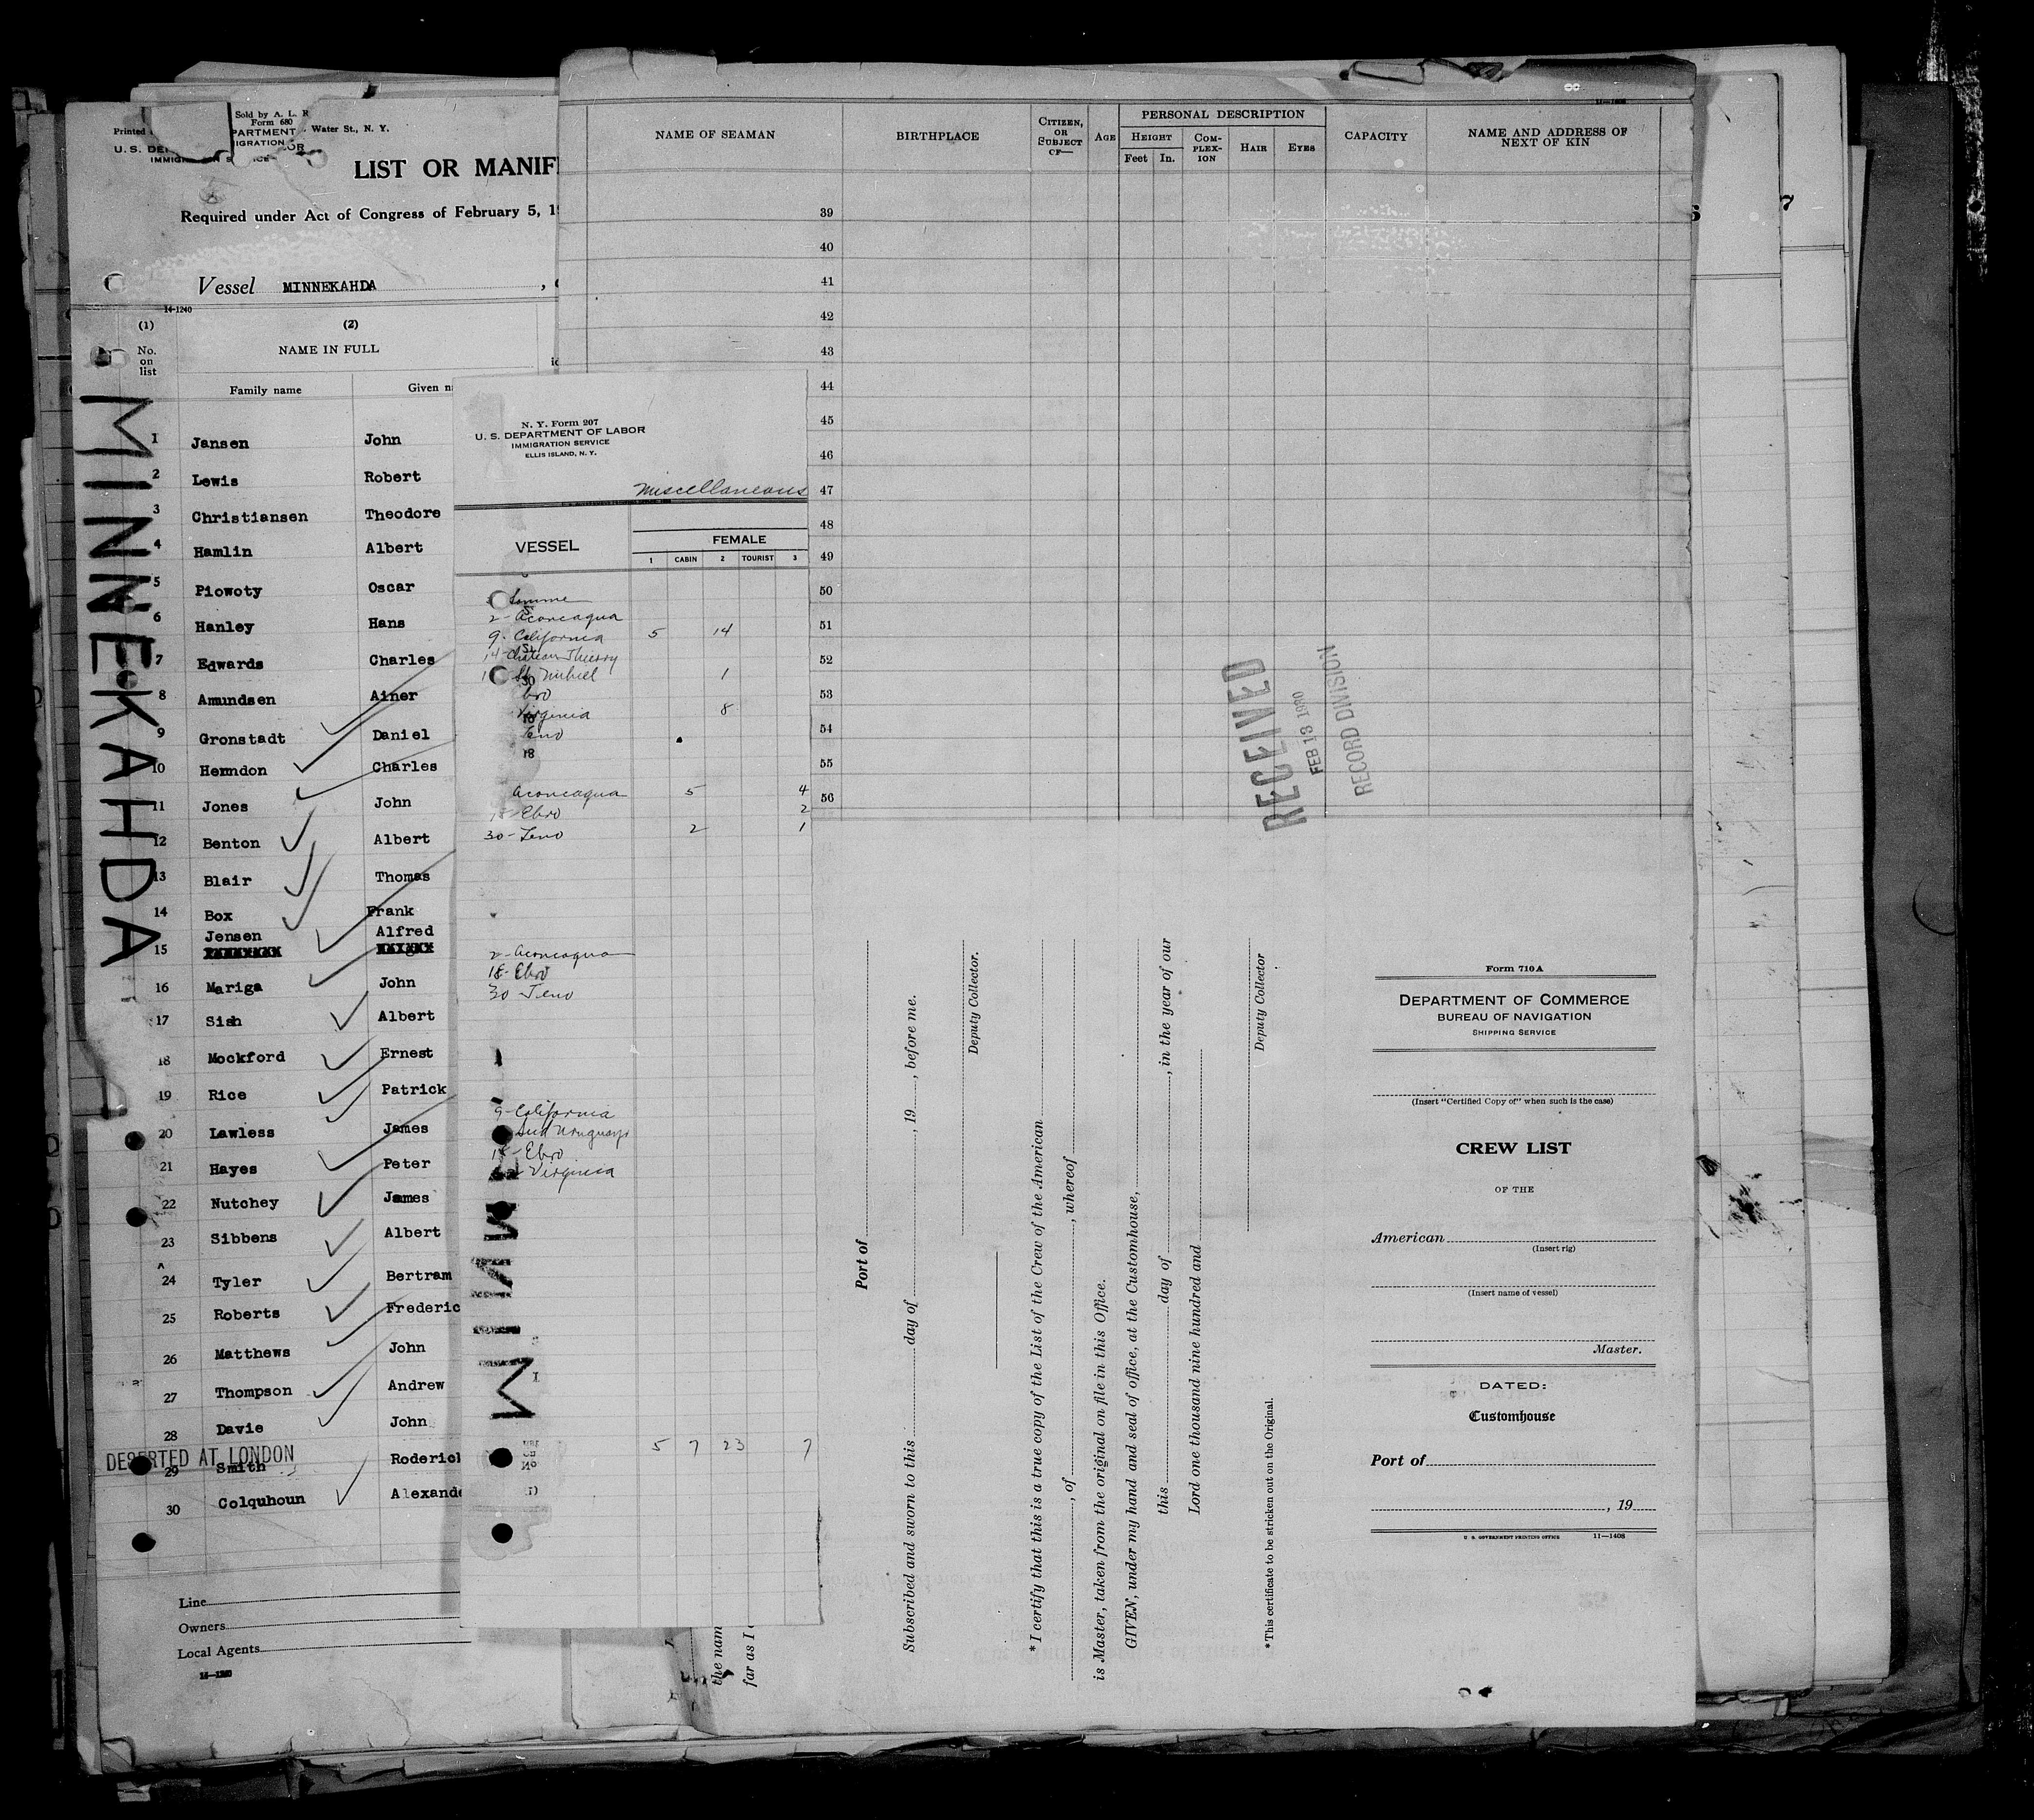 Sold by A. L. R
Form 680
Printed
Water St., N. Y.
U. S. DEPARTMENT
IMMIGRATION
LIST OR MANIF
Required under Act of Congress of February 5, 19
Vessel MINNEKAHDA
14-1240
(1) (2)
No. on list
NAME IN FULL
Family name Given na
MINNEKAHDA
1 Jansen John
2 Lewis Robert
3 Christiansen Theodore
4 Hamlin Albert
5 Piowoty Oscar
6 Hanley Hans
7 Edwards Charles
8 Amundsen Ainer
9 Gronstadt Daniel
10 Herndon Charles
11 Jones John
12 Benton Albert
13 Blair Thomas
14 Box Frank
Jensen Alfred
15
16 Mariga John
17 Sish Albert
18 Mockford Ernest
19 Rice Patrick
20 Lawless James
21 Hayes Peter
22 Nutchey James
23 Sibbens Albert
24 Tyler Bertram
25 Roberts Frederic
26 Matthews John
27 Thompson Andrew
28 Davie John
DESERTED AT LONDON
29 Smith Roderick
30 Colquhoun Alexande
Line
Owners
Local Agents
14-1240
N. Y. Form 207
U. S. DEPARTMENT OF LABOR
IMMIGRATION SERVICE
ELLIS ISLAND, N. Y.
Miscellaneous
VESSEL
FEMALE
1 CABIN 2 TOURIST 3
Somme
2- Aconcagua
9- California 5 14
14- Chateau Thierry
St. Mihiel 1
Ebro
Virginia 8
Teno
18
Aconcagua 5 4
18- Ebro 2
30- Teno 2 1
2- Aconcagua
18- Ebro
30- Teno
9- California
Sud Uruguayo
18- Ebro
Virginia
5 7 23 7
the nam
far as I
11-1408
NAME OF SEAMAN
BIRTHPLACE
CITIZEN, OR SUBJECT OF—
AGE
PERSONAL DESCRIPTION
HEIGHT
Feet In.
COMPLEXION
HAIR
EYES
CAPACITY
NAME AND ADDRESS OF NEXT OF KIN
39
40
41
42
43
44
45
46
47
48
49
50
51
52
53
54
55
56
RECEIVED
FEB 13 1930
RECORD DIVISION
Port of
Subscribed and sworn to this day of , 19 , before me.
Deputy Collector.
* I certify that this is a true copy of the List of the Crew of the American
, of , whereof
is Master, taken from the original on file in this Office.
GIVEN, under my hand and seal of office, at the Customhouse,
this day of , in the year of our
Lord one thousand nine hundred and
Deputy Collector
* This certificate to be stricken out on the Original.
Form 710A
DEPARTMENT OF COMMERCE
BUREAU OF NAVIGATION
SHIPPING SERVICE
(Insert "Certified Copy of" when such is the case)
CREW LIST
OF THE
American
(Insert rig)
(Insert name of vessel)
Master.
DATED:
Customhouse
Port of
, 19
U. S. GOVERNMENT PRINTING OFFICE 11—1408
7